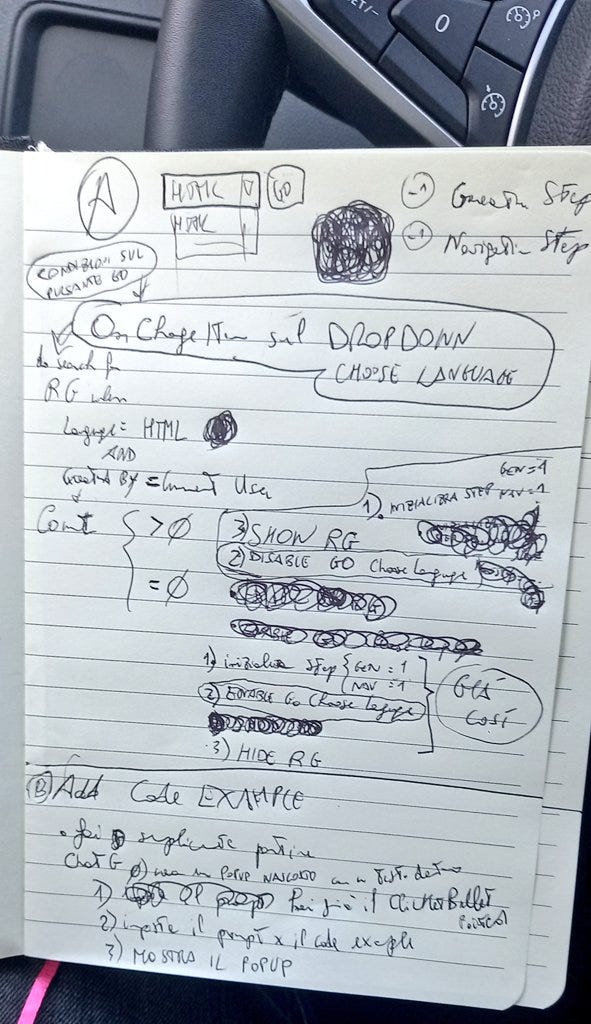 SET/-
0
A
HTML GO
HTML
-1 Creation Step
-1 Navigation Step
CONDIZIONI SUL
PULSANTE GO
On Change Item sul DROPDOWN
CHOOSE LANGUAGE
do search for
RG when
Language = HTML
AND
Created By = Current User
GEN=1
1) INIZIALIZZA STEP NAV=1
Count > 0
3) SHOW RG
2) DISABLE GO Choose Language
= 0
ENABLE
1) inizializza step GEN = 1
NAV = 1
2) ENABLE GO Choose Language
3) HIDE RG
GIÀ
COSÌ
B Add Code EXAMPLE
• fai semplicemente partire
ChatG
0) crea un POPUP NASCOSTO con un testo dentro
1) hai già il Bullet
2) imposta il prompt x il code example
3) MOSTRA IL POPUP